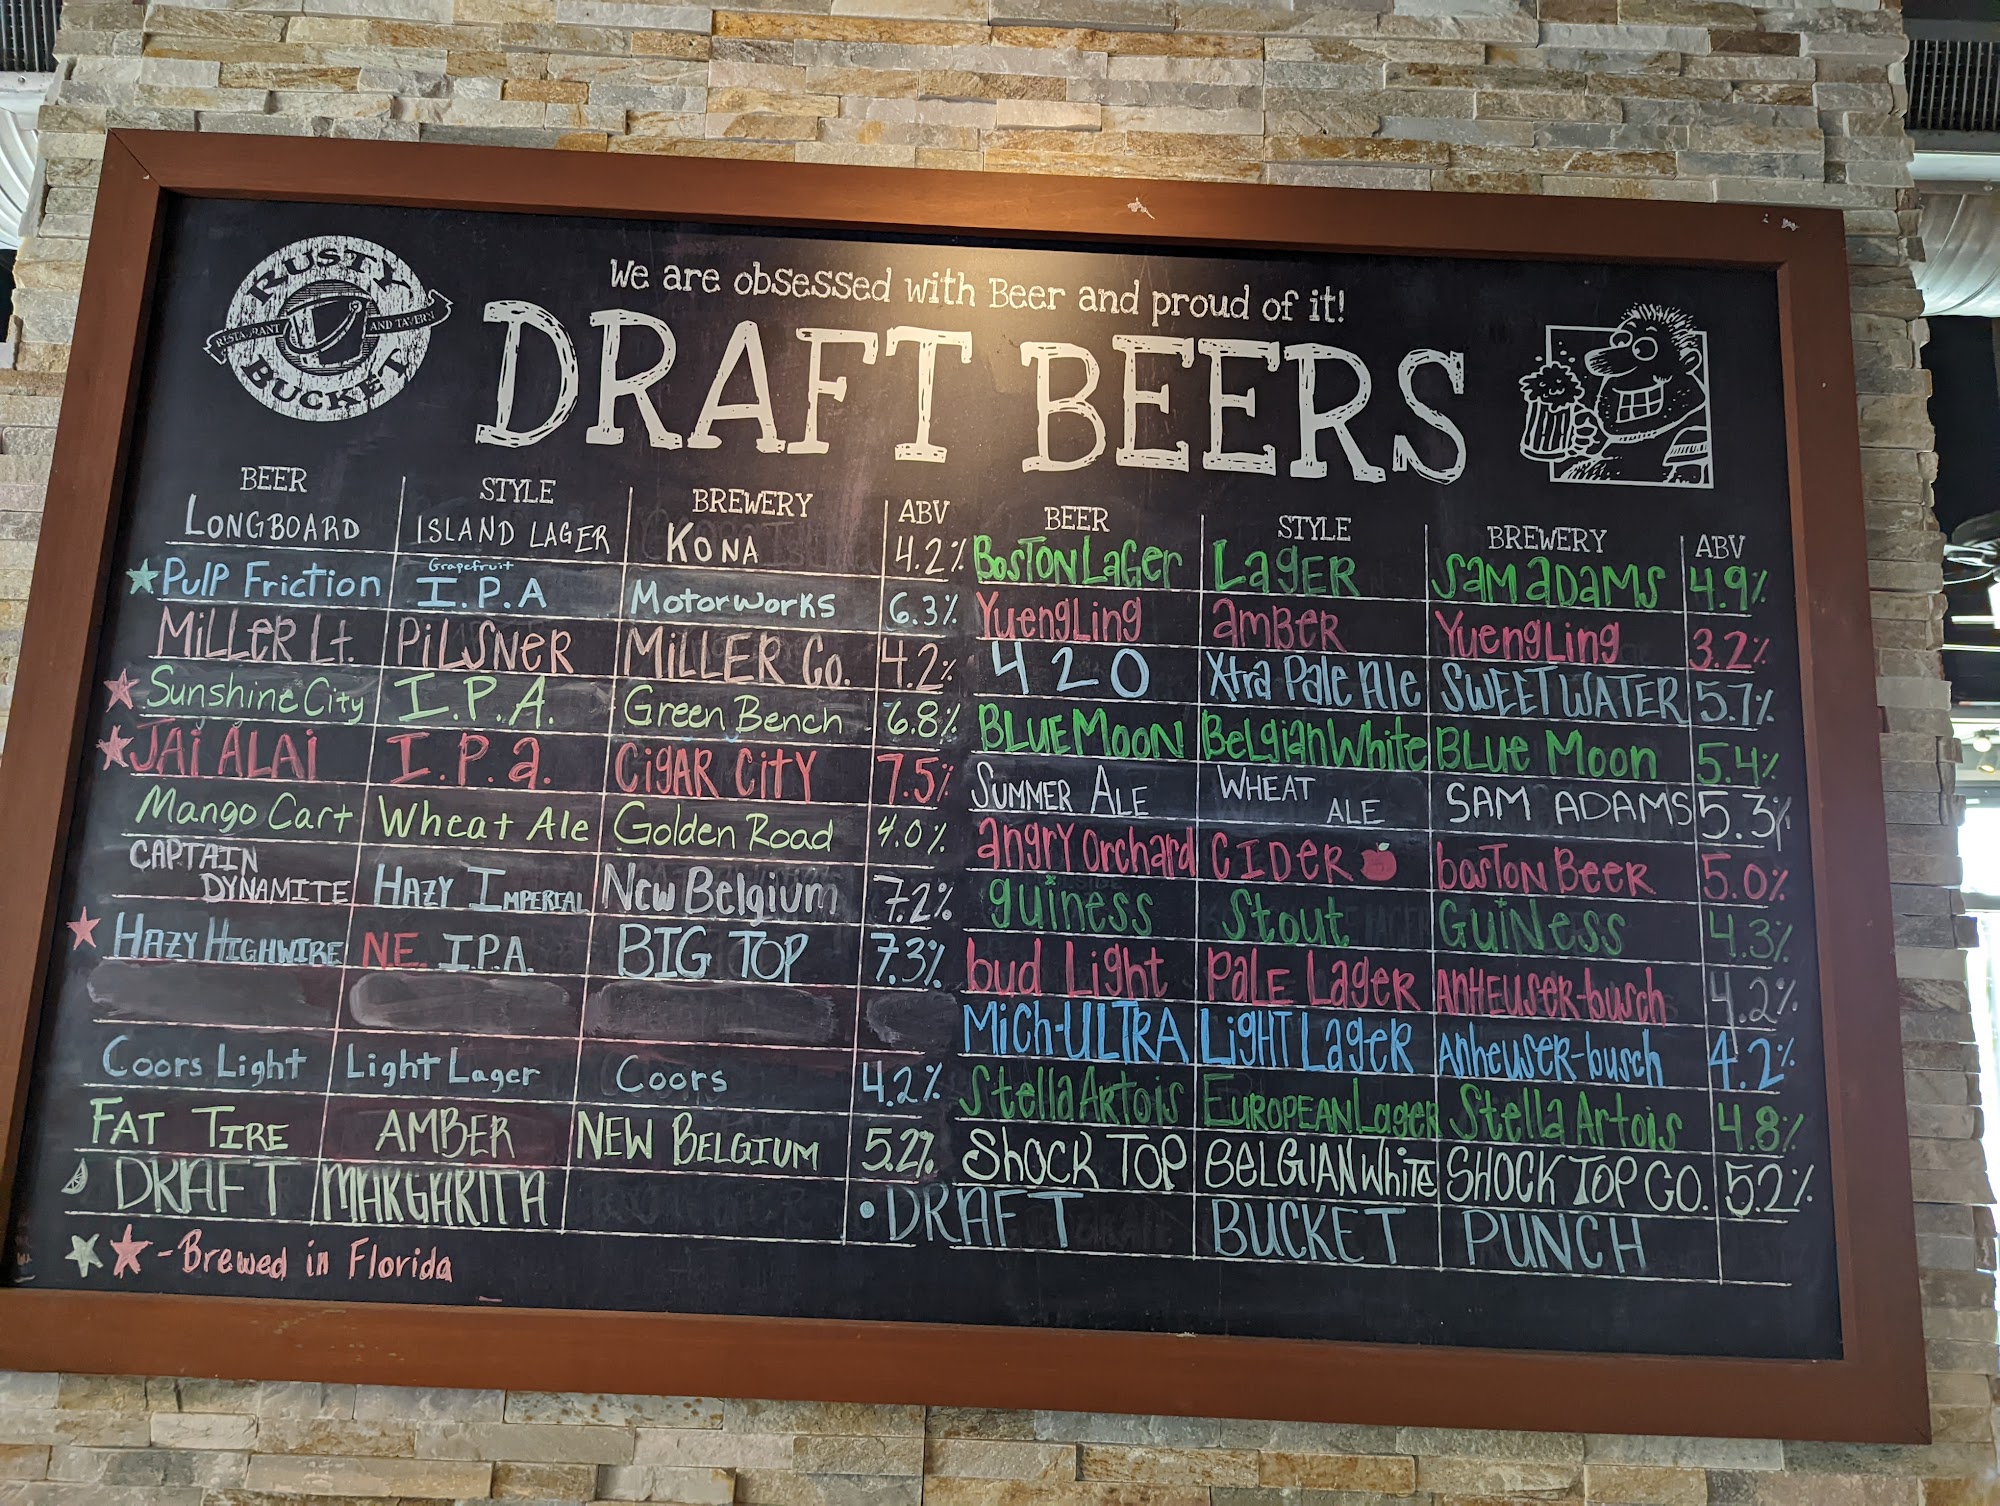 RUSTY
RESTAURANT AND TAVERN
BUCKET
We are obsessed with Beer and proud of it!
DRAFT BEERS
BEER STYLE BREWERY ABV
LONGBOARD ISLAND LAGER KONA 4.2%
Pulp Friction Grapefruit I.P.A Motorworks 6.3%
MiLLER Lt. PiLSNER MiLLER Co. 4.2%
Sunshine City I.P.A. Green Bench 6.8%
JAi ALAi I.P.a. CigAR CiTY 7.5%
Mango Cart Wheat Ale Golden Road 4.0%
CAPTAIN DYNAMITE HAZY IMPERIAL New Belgium 7.2%
HAZY HIGHWIRE N.E. I.P.A. BIG TOP 7.3%
Coors Light Light Lager Coors 4.2%
FAT TIRE AMBER NEW BELGIUM 5.2%
DRAFT MARGARITA
- Brewed in Florida
BEER STYLE BREWERY ABV
BosTON LagEr LagER Sam aDams 4.9%
YuengLing amBER YuengLing 3.2%
420 Xtra Pale Ale SWEETWATER 5.7%
BLUE MOON Belgian White BLUE Moon 5.4%
SUMMER ALE WHEAT ALE SAM ADAMS 5.3%
angry Orchard CIDER bosTON BEER 5.0%
guiness Stout GuiNess 4.3%
bud Light PaLE Lager AnHEUSER-busch 4.2%
MiCH-ULTRA LigHT LagER Anheuser-busch 4.2%
Stella Artois EUROPEAN Lager Stella Artois 4.8%
SHOCK TOP BELGIAN White SHOCK TOP CO. 5.2%
•DRAFT BUCKET PUNCH